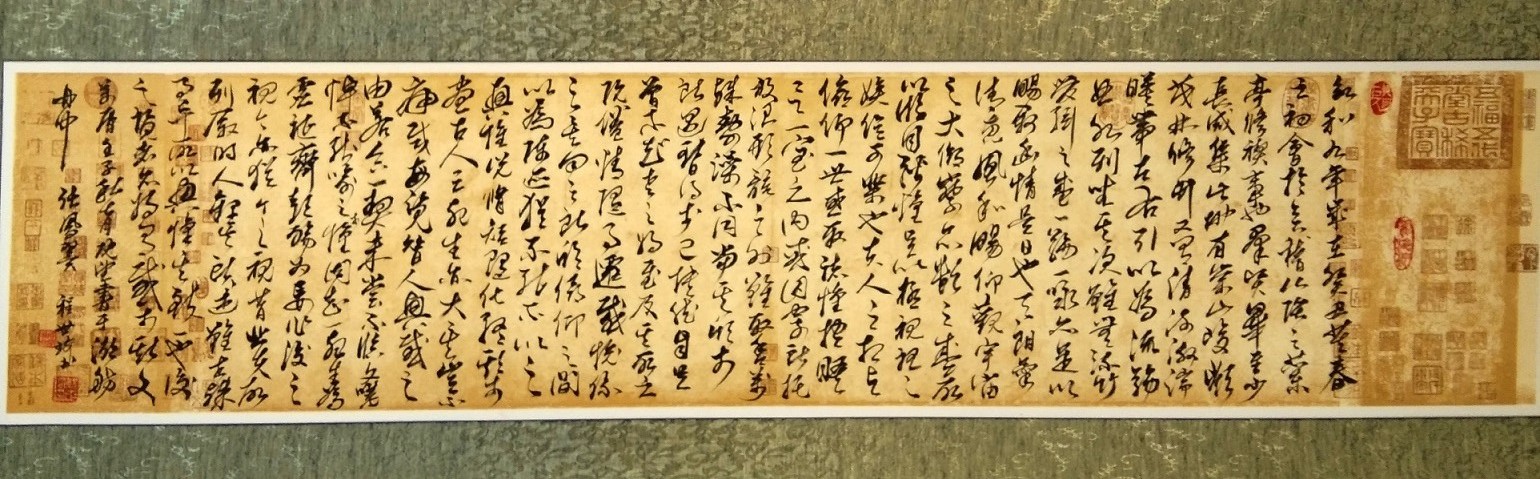 永和九年歲在癸丑暮春
之初會於會稽山陰之蘭
亭脩禊事也羣賢畢至少
長咸集此地有崇山峻嶺
茂林修竹又有清流激湍
暎帶左右引以為流觴
曲水列坐其次雖無絲竹
管絃之盛一觴一詠亦足以
暢敘幽情是日也天朗氣
清惠風和暢仰觀宇宙
之大俯察品類之盛所
以遊目騁懷足以極視聽之
娛信可樂也夫人之相與
俯仰一世或取諸懷抱悟
言一室之內或因寄所託
放浪形骸之外雖取舍萬
殊靜躁不同當其欣於
所遇暫得於己怏然自足
曾不知老之將至及其所之
既倦情隨事遷感慨係
之矣向之所欣俛仰之間
以為陳迹猶不能不以之
興懷況脩短隨化終期於
盡古人云死生亦大矣豈不
痛哉每覽昔人興感之
由若合一契未嘗不臨文嗟
悼不能喻之於懷固知一死生為
虛誕齊彭殤為妄作後之
視今亦猶今之視昔悲夫故
列敘時人錄其所述雖世殊
事異所以興懷其致一也後
之攬者亦將有感於斯文
萬曆壬子秋
舟中 張鳳翼